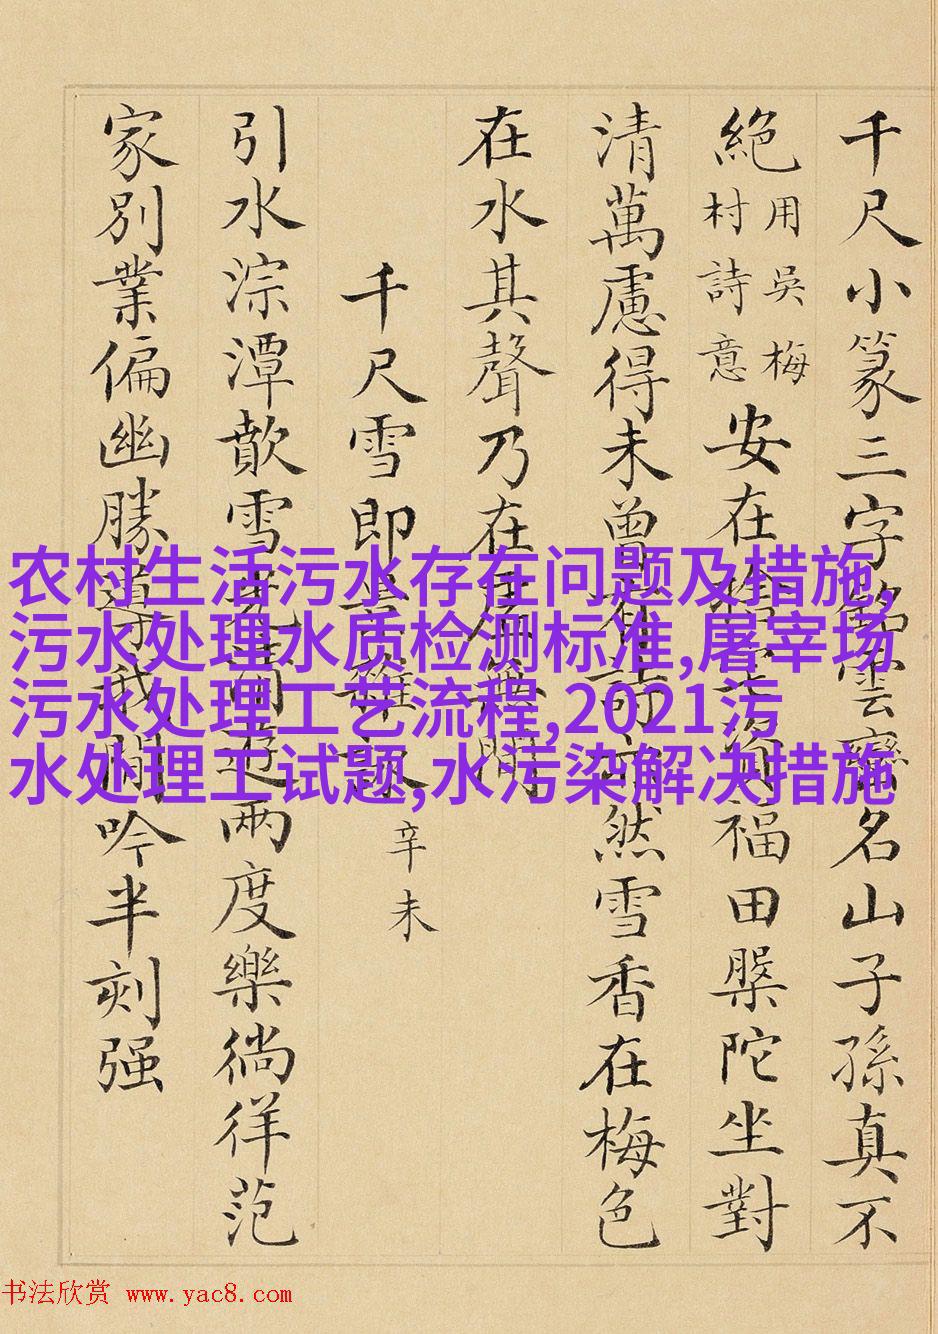 千尺小篆三字雲巒名山子孫真不
絶
用吳梅
村詩意
安在福田槃陀坐對
清萬慮得未曾有然雪香在梅色
在水其聲乃在虛無間
千尺雪即景雜詠
辛未
引水淙潭歕雪兩度樂徜徉范
家別業偏幽勝導我閒吟半刻强
农村生活污水存在问题及措施,
污水处理水质检测标准,屠宰场
污水处理工艺流程,2021污
水处理工试题,水污染解决措施
书法欣赏 www.yac8.com